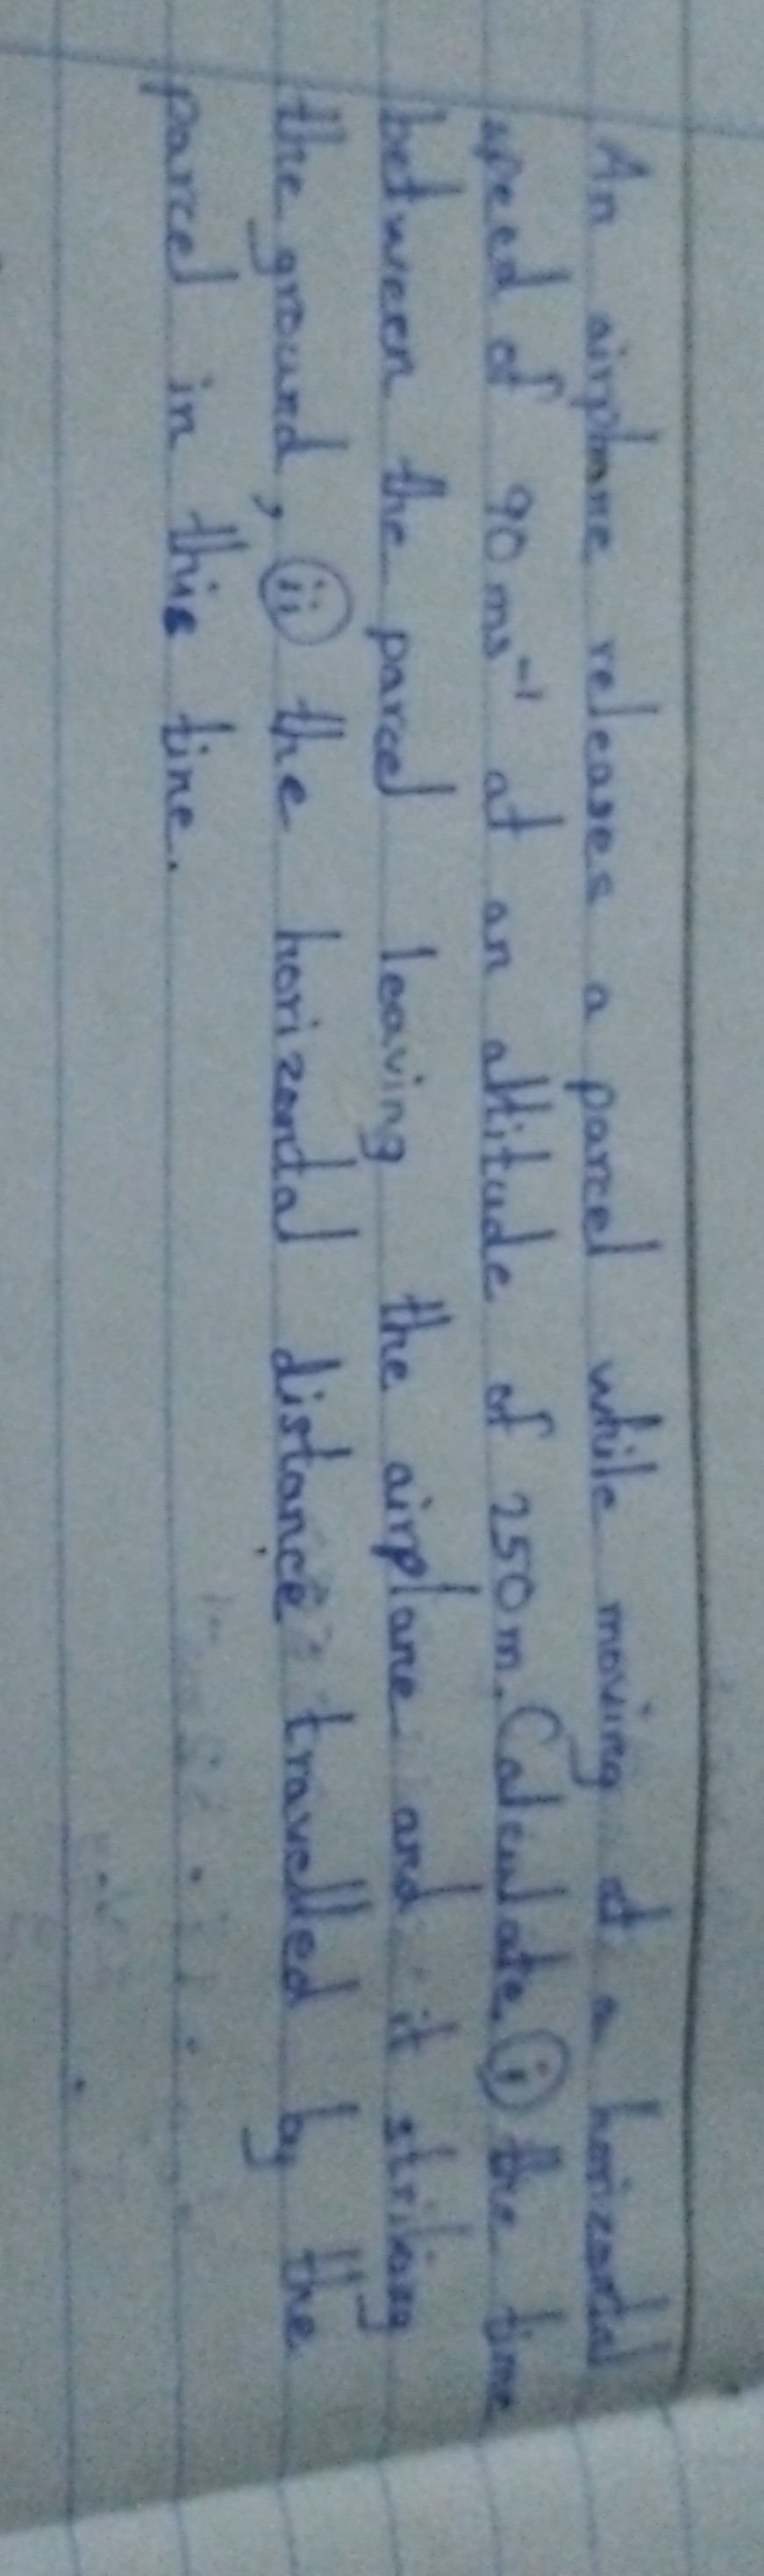 An airplane releases a parcel while moving at a horizontal
speed of 90 ms⁻¹ at an altitude of 250 m. Calculate, (i) the time
between the parcel leaving the airplane and it striking
the ground, (ii) the horizontal distance travelled by the
parcel in this time.